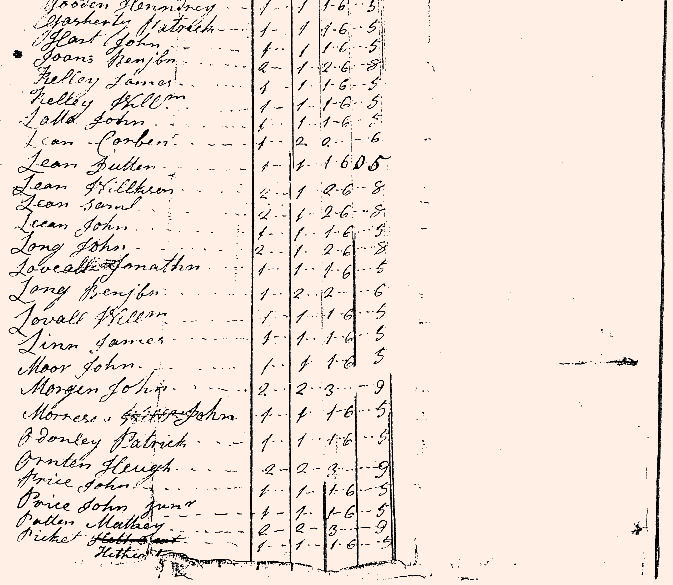 Gooden Henndrey 1 - 1 1-6 5
Gasherty Patrick 1 - 1 1-6 5
Hart John 1 - 1 1-6 5
Joans Benjbn 2 - 1 2-6 8
Kelley James 1 1 1-6 5
Kelley Willm 1 - 1 1-6 5
Latta John 1 1 1-6 5
Lean Corben 1 2 2 - 6
Lean Dutten 1 - 1 1-6 0 5
Lean Wilkson 2 1 2-6 8
Lean Saml 2 1 2-6 8
Leean John 1 - 1 1-6 5
Long John 2 - 1 2-6 8
Loveall Jonathn 1 - 1 1-6 5
Long Benjbn 1 - 2 2 - 6
Lovall Willm 1 1 1-6 5
Linn James 1 - 1 1-6 5
Moor John 1 1 1-6 5
Morgen John 2 - 2 3 - 9
Morress John 1 1 1-6 5
Odonley Patrick 1 - 1 1-6 5
Ornten Heugh 2 - 2 3 - 9
Price John 1 - 1 1-6 5
Price John Junr 1 - 1 1-6 5
Putten Mathey 2 - 2 3 - 9
Picket 1 - 1 1-6 5